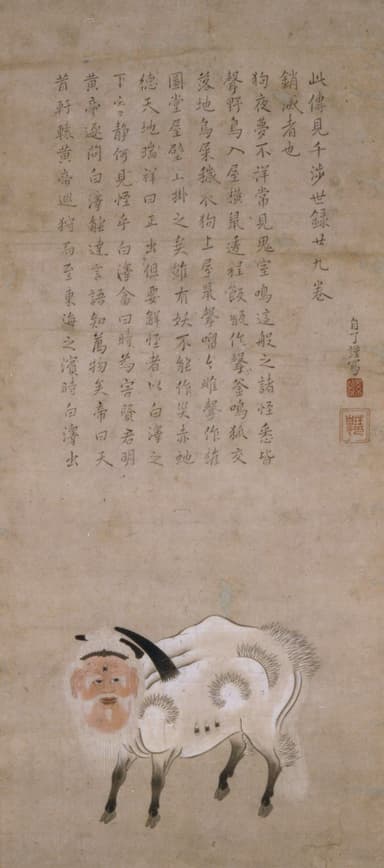 昔軒轅黄帝巡狩而至東海之濱時白澤出
黄帝逐問白澤能達言語知萬物矣帝曰天
下静何見恠乎白澤曰時為害賢君明
德天地瑞祥曰正出但要解怪者以白澤之
圖堂屋壁上掛之矣雖有妖不能作災赤虵
落地鳥屎穢衣狗上屋鼠聲雌聲作雄
聲野鳥入屋横鼠遶程飯甑作聲釜鳴狐交
狗夜夢不祥常見鬼室鳴這般之諸怪悉皆
銷滅者也
此傳見千渉世録廿九巻
自了謹寫